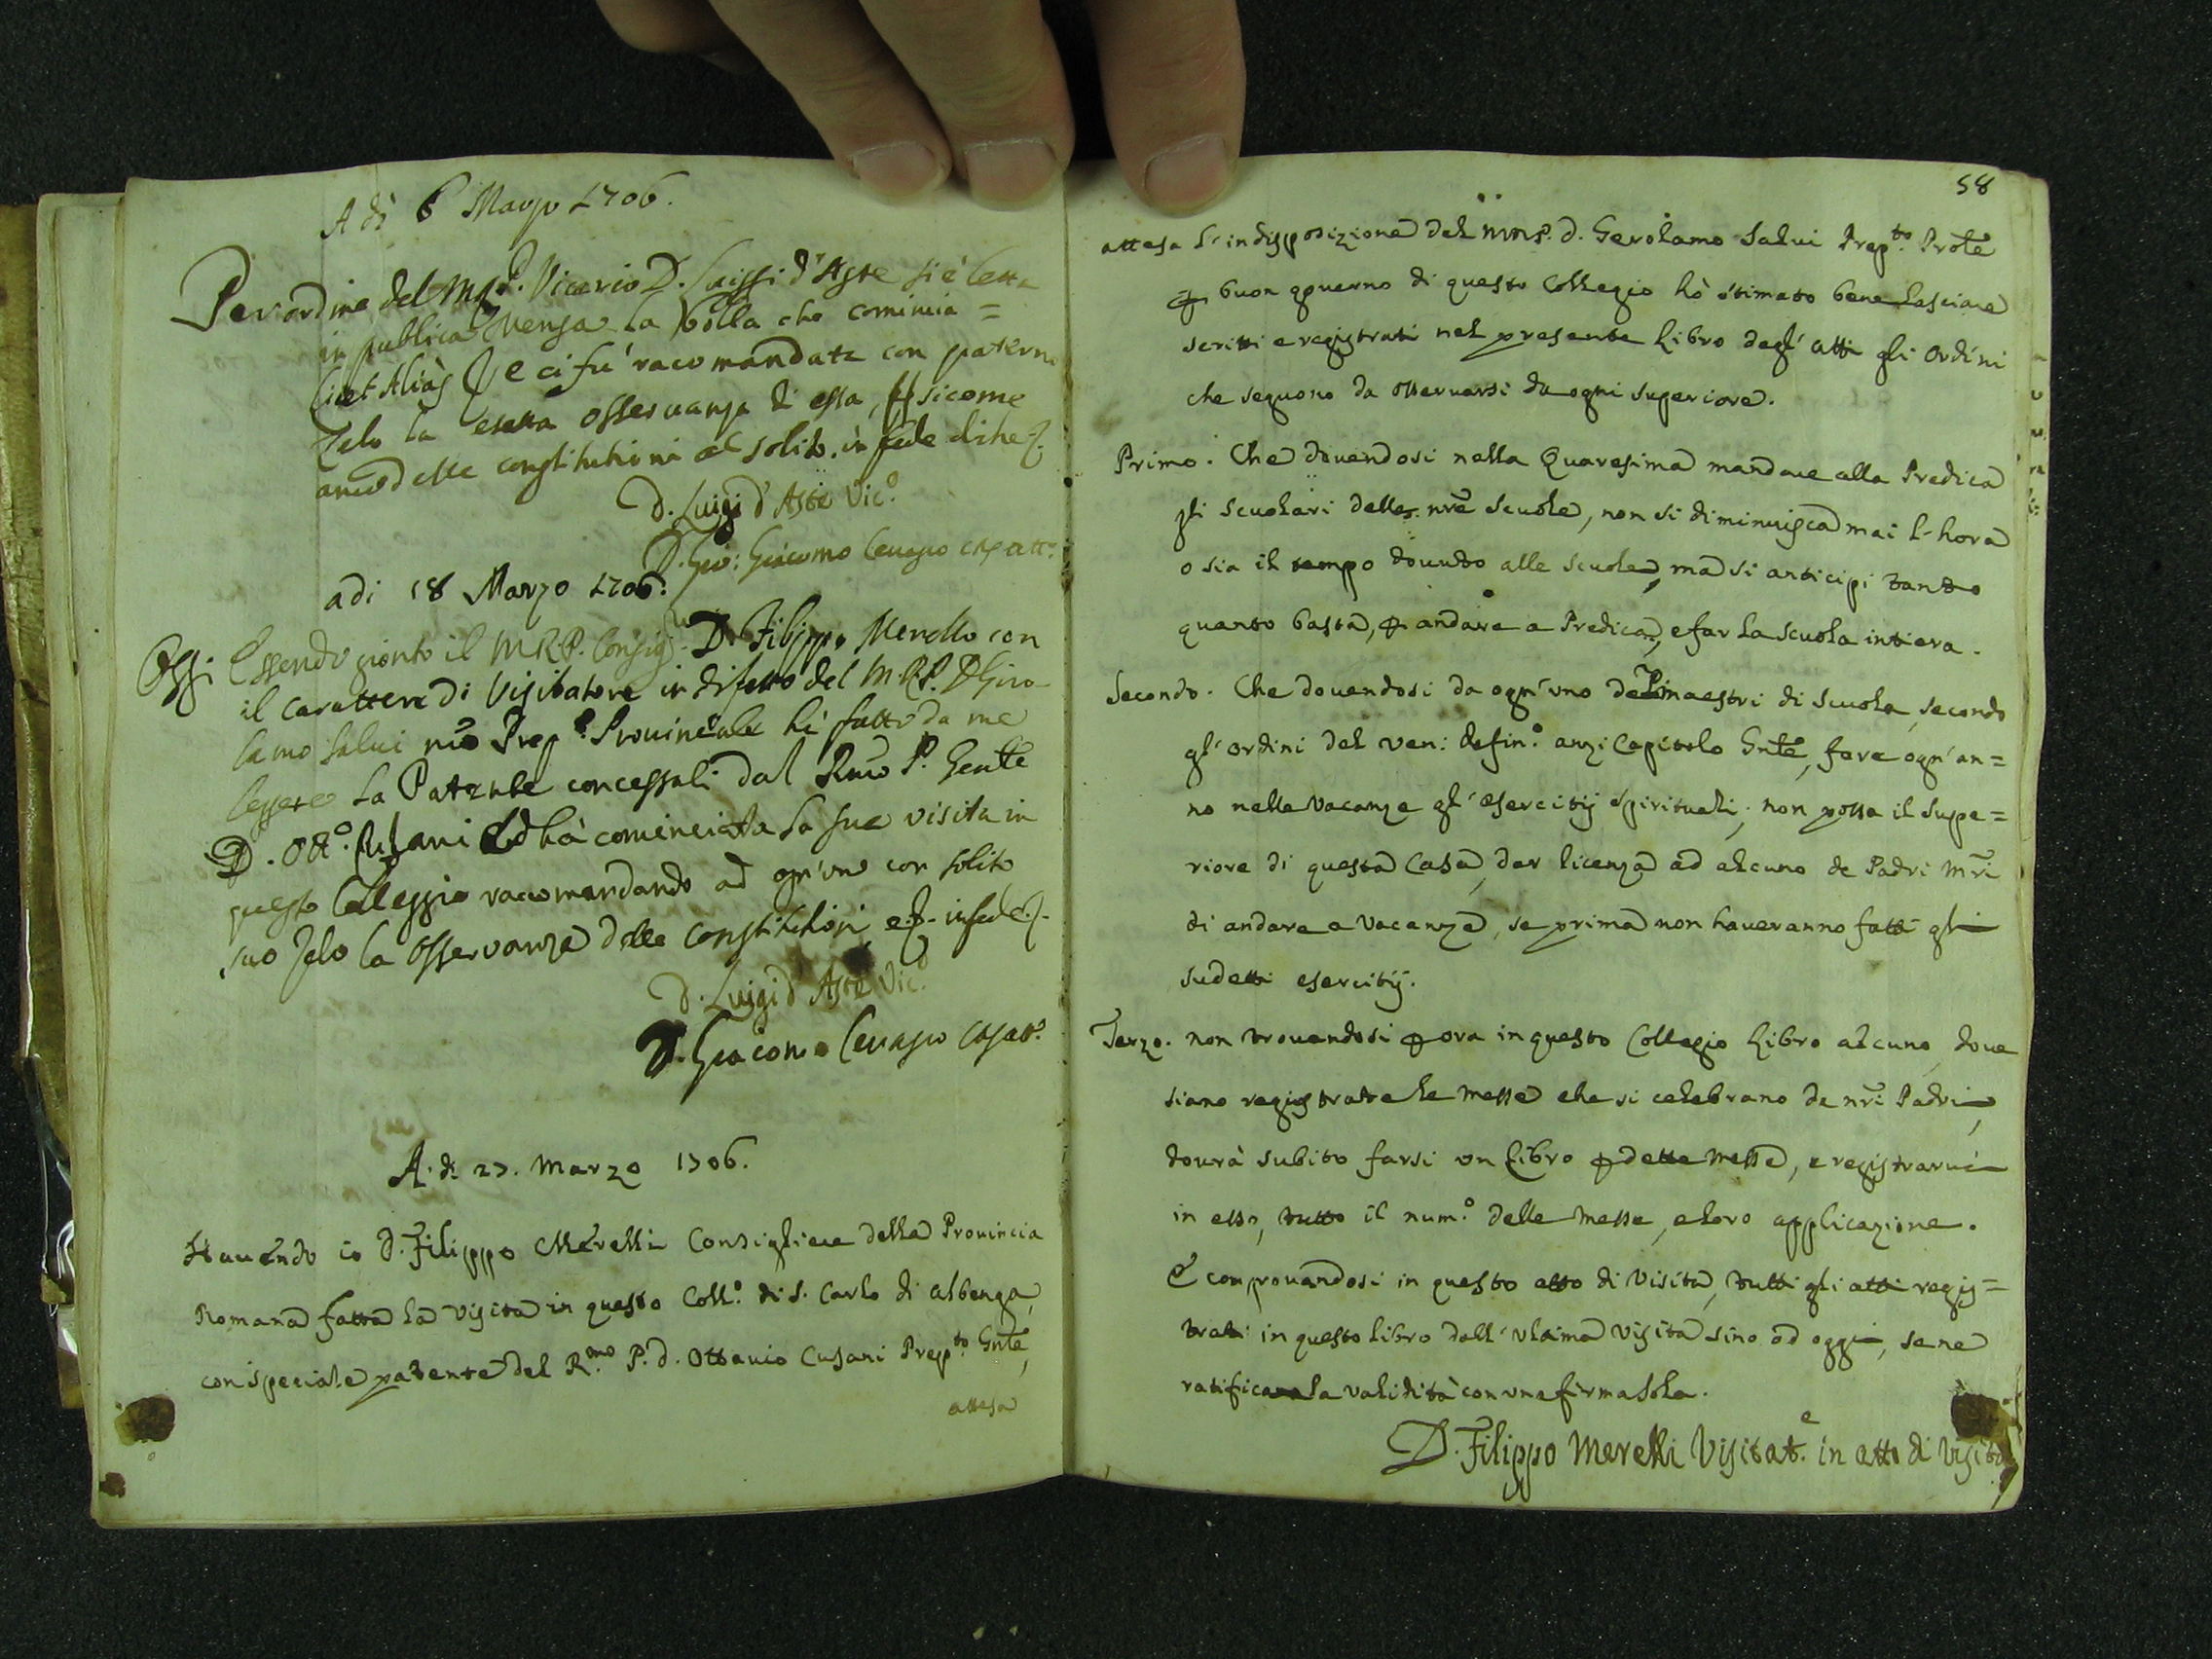 A dì 6 Marzo 1706.
Per ordine del M.R.P. Vicario D. Luiggi d'Aste si è letta
in publica Mensa la bolla che comincia =
licet Aliàs & e ci fù racomandata con paterno
Zelo la esatta osservanza di essa, sicome
anco delle constitutioni al solito. in fede di che &.
D. Luigi d'Aste Vic.º
D. Gio: Giacomo Cevasco att.º
adi 18 Marzo 1706.
Oggi Essendo gionto il M.R.P. Consig.re D. Filippo Merello con
il carattere di Visitatore in difetto del M.R.P. D. Giro-
lamo Salvi nrõ Prep.º Provinciale hà fatto da me
leggere la Patente concessali dal Rmõ P. Genle
D. Ott.º Cusani Ed hà cominciata la sua visita in
questo Colleggio racomandando ad ogn'uno con solito
suo Zelo la osservanza delle constitutioni e &. in fede &.
D. Luigi d'Aste Vic.º
D. Giacomo Cevasco att.º
A. dì 27. Marzo 1706.
Havendo io D. Filippo Merelli Consigliere della Provincia
Romana fatta la visita in questo Coll.º di S. Carlo di Albenga,
con speciale patente del R.mo P. D. Ottavio Cusani Prep.to Gnle,
attesa
58
attesa l'indisposizione del D. Gerolamo Salvi Prep.to Prõle
ꝑ buon governo di questo Collegio hò stimato bene lasciare
scritti e registrati nel presente libro degl'atti gli ordini
che seguono da osservarsi da ogni superiore.
Primo. Che dovendosi nella Quaresima mandare alla Predica
gli scuolari delle nrẽ scuole, non si diminuisca mai l'hora
o sia il tempo dovuto alle scuole, ma si anticipi tanto
quanto basta, ꝑ andare a Predica, e far la scuola intiera.
Secondo. Che dovendosi da ogn'uno de PP. maestri di scuola, secondo
gl'ordini del ven: defin.º anzi Capitolo Gnle, fare ogn'an=
no nelle vacanze gl'esercitij spirituali; non possa il supe=
riore di questa Casa, dar licenza ad alcuno de Padri Mrĩ
di andare a vacanze, se prima non haveranno fatti gli
sudetti esercitij.
Terzo. non trovandosi ꝑ ora in questo Collegio libro alcuno, dove
siano registrate le messe che si celebrano da nrĩ Padri,
dovrà subito farsi un libro ꝑ dette messe, e registrarvi
in esso, tutto il num.º delle messe, e loro applicazione.
E comprovandosi in questo atto di visita, tutti gli atti regis=
trati in questo libro dall'ultima visita sino ad oggi, se ne
ratifica la validità con una firma sola.
D. Filippo Merelli Visitat.e in atto di Visita